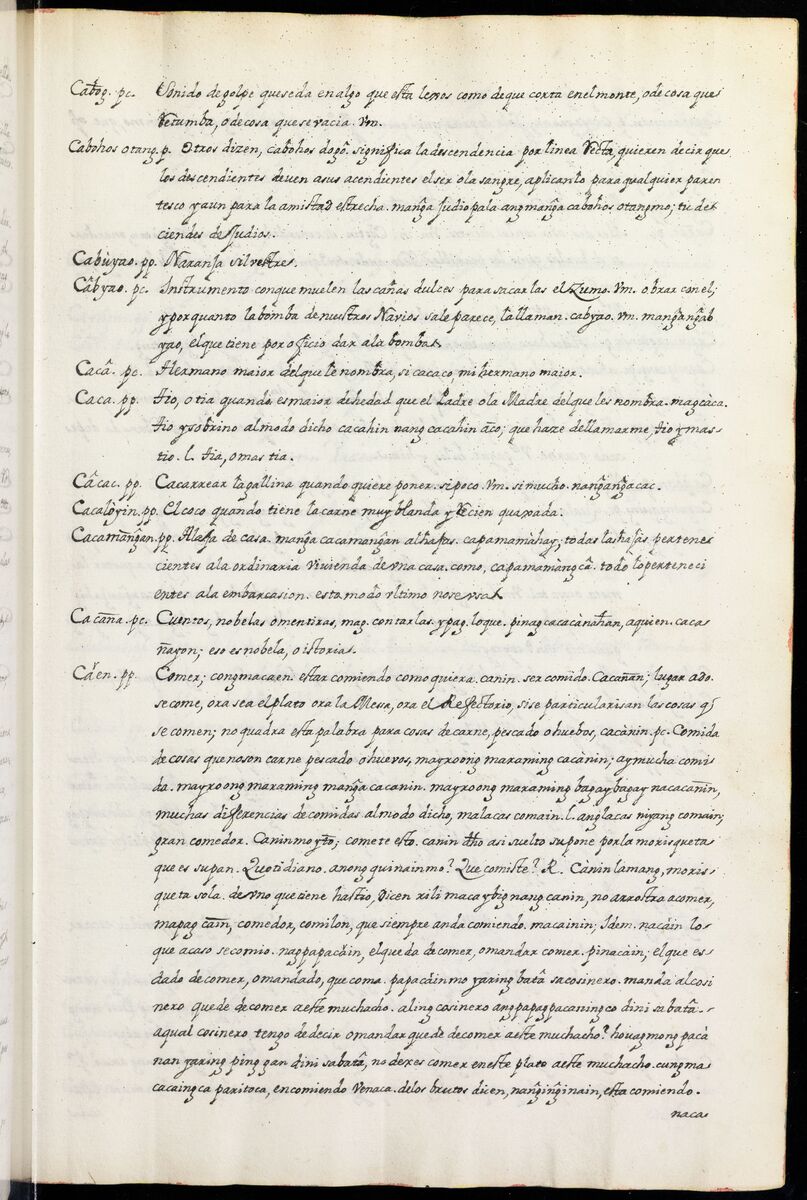 Cabog. pc. Sonido de golpe que se da en algo que esta lexos como de que corta en el monte, o de cosa que
Retumba, o de cosa que se vacia. Vm.
Cabohos otang. p. Otros dizen, cabohos dogô. significa la descendencia por linea Recta, quieren decir que
los descendientes deven a sus acendientes el ser o la sangre, aplicanlo para qualquier paren
tesco y aun para la amistad estrecha. manga Judio pala ang manga cabohos otang mo; tu de
ciendes de Judios.
Cabùyao. pp. Naranja silvestre.
Câbyao. pc. Instrumento con que muelen las cañas dulces para sacarlas el Zumo. Vm. obrar con el;
y por quanto la bomba de nuestros Navios sale parece, la llaman. cabyao. vm. mangangab
yao, el que tiene por oficio dar a la bomba.
Cacâ. pc. Hermano maior del que le nombra, si cacaco, mi hermano maior.
Caca. pp. tio, o tia quando es maior de hedad que el Padre o la Madre del que les nombra. magcàca.
tio y sobrino al modo dicho cacahin nang cacahin aco; que haze de llamarme, tio y mas
tio. l. tia, o mas tia.
Câcac. pp. Cacarrear la gallina quando quiere poner. si poco. Vm. si mucho. nangangacac.
Cacalòyin. pp. El coco quando tiene la carne muy blanda y Recien quaxada.
Cacamangan. pp. Alaja de casa. manga cacamangan alhajas. capamamahay; todas las hajas pertenes
cientes a la ordinaria vivienda de vna casa. como, capamamangcâ. todo lo perteneci
entes a la embarcasion. esta modo vltimo no se vsa.
Cacana. pc. Cuentos, nobelas o mentiras, mag. contarlas. y pag. lo que. pinagcacacànahan, a quien. caca
nayon; eso es nobela, o istoria.
Càen. pp. Comer; cong macaen. estar comiendo como quiera. canin. ser comido. Cacañan; lugar ado.
se come, ora sea el plato ora la Mesa, ora el Refectorio, si se particularisan las cosas q̃
se comen; no quadra esta palabra para cosas de carne, pescado o huebos, cacànin. pc. Comida
de cosas que no son carne pescado o huevos, mayroong maraming cacànin; ay mucha comi
da. mayroong maraming manga cacanin. mayroong maraming bagay bàgay na cacanin,
muchas diferencias de comidas al modo dicho, malacas comain. l. anglacas niyang comain;
gran comedor. Canin mo yto; comete esto. canin dho asi suelto supone por la morisqueta
que es su pan. Quotidiano. anong quinain mo? Que comiste? R. Canin lamang, moris
queta sola. de vno que tiene hastio, dicen xili macaybig nang canin, no arrostra a comer,
mapag cain, comedor, comilon, que siempre anda comiendo. macainin; Idem. nacàin lo
que acaso se comio. nagpapacàin, el que da de comer, o mandar comer. pinacàin; el que es
dado de comer, o mandado, que coma. papacàin mo yaring batâ sa cosinero. manda al cosi
nero que de de comer a este muchacho. aling cosinero ang papagpacaningco dini sa batâ.
a qual cosinero tengo de decir o mandar que de de comer a este muchacho? houag mong pacà
nan yaring pinggan dini sa batâ, no dexes comer en este plato a este muchacho. cung ma
cacaingca paritoca, en comiendo Ven aca. de los brutos dicen, nanginginain, esta comiendo.
naca